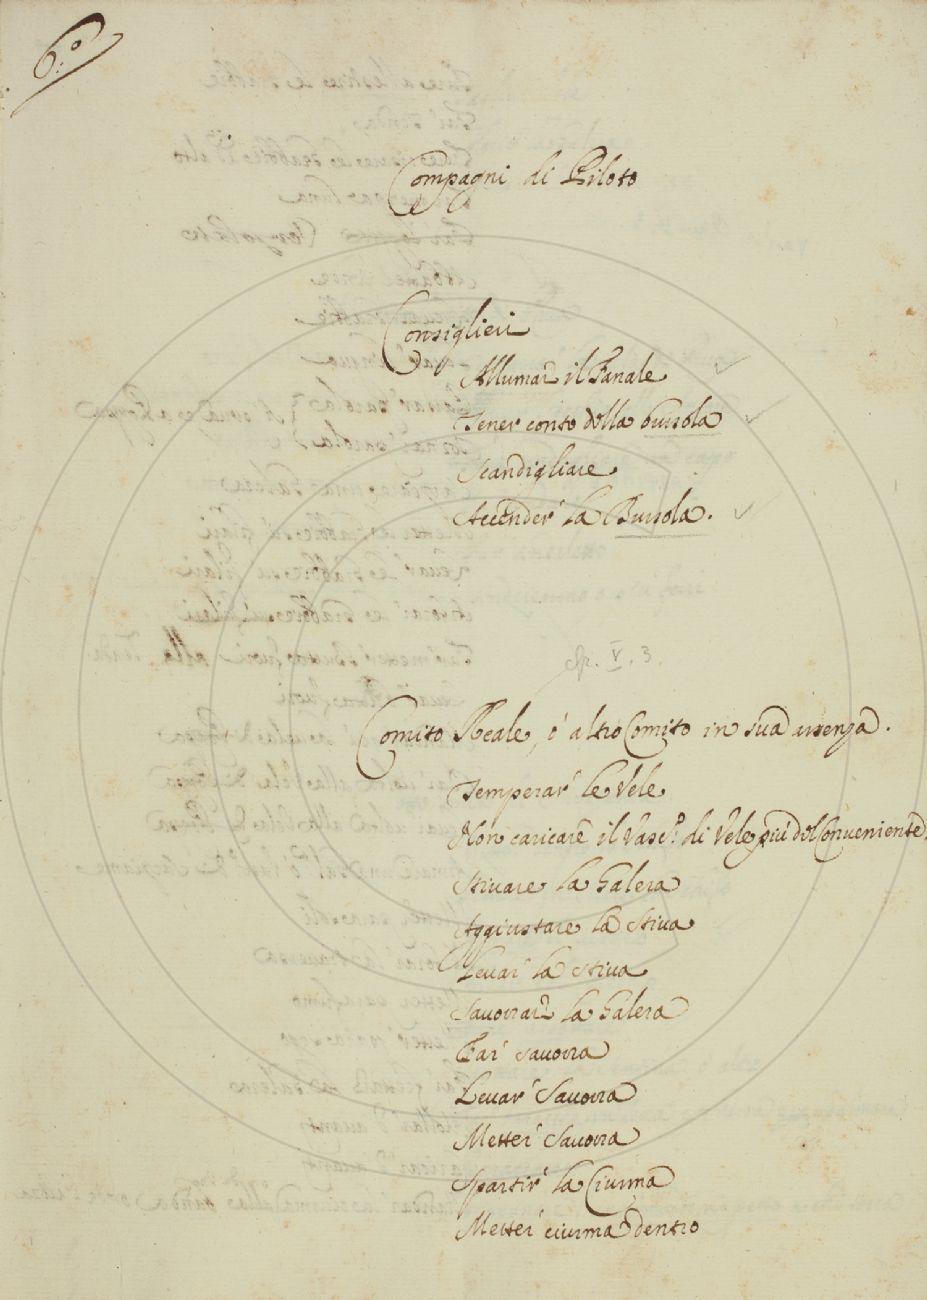 6.º
Compagni di Piloto
Consiglieri
Allumar il Fanale
Tener conto della bussola
Scandigliare
Accender la Bussola.
cfr. V. 3.
Comito Reale, ò altro Comito in sua assenza.
Temperar le Vele
Non caricare il Vasc.º di Vele più del Conveniente.
Stivare la Galera
Aggiustare la Stiva
Levar la Stiva
Savorrar la Galera
Far savorra
Levar Savorra
Metter Savorra
Spartir la Ciurma
Metter ciurma dentro